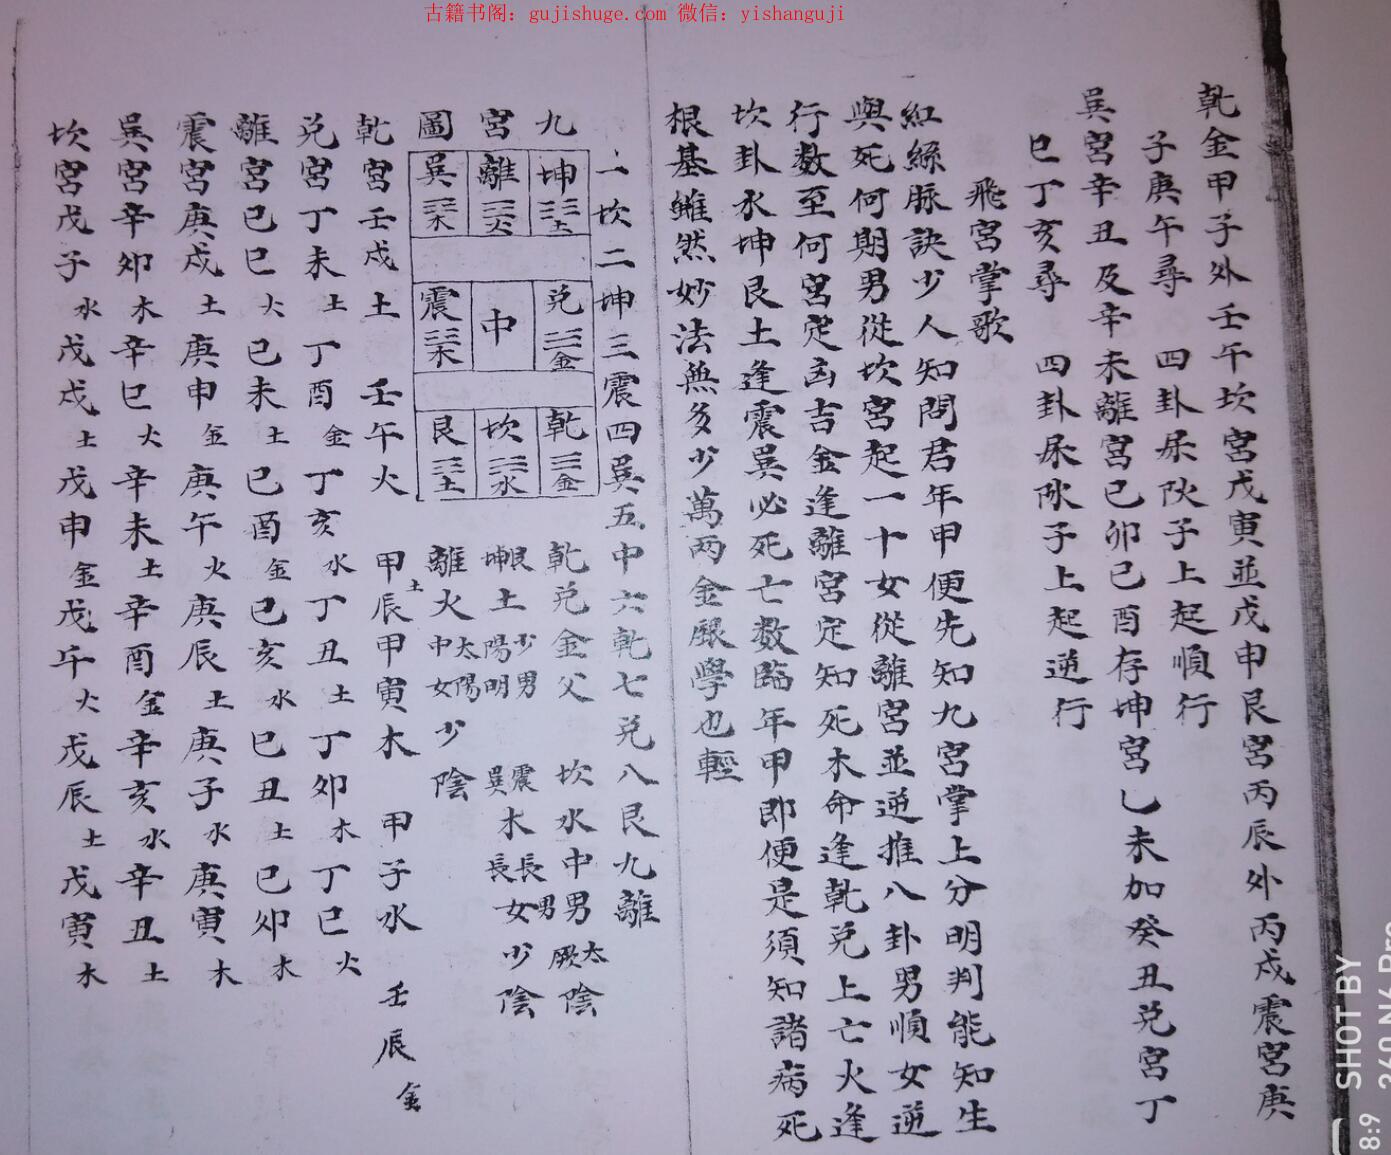 古籍书阁：gujishuge.com 微信：yishanguji
乾金甲子外壬午坎宮戊寅並戊申艮宮丙辰外丙戌震宮庚
子庚午尋 四卦尿 子上起順行
巽宮辛丑及辛未離宮己卯己酉存坤宮乙未加癸丑兑宮丁
巳丁亥尋 四卦尿 子上起逆行
飛宮掌歌
紅絲脉訣少人知問君年甲便先知九宮掌上分明判能知生
與死何期男從坎宮起一十女從離宮並逆推八卦男順女逆
行数至何宮定凶吉金逢離宮定知死木命逢乾兑上亡火逢
坎卦水坤艮土逢震巽必死亡数臨年甲即便是須知諸病死
根基雖然妙法無多少萬両金銀學也輕
一坎二坤三震四巽五中六乾七兑八艮九離
九宮圖
坤 土 離 火 巽 木
兑 金 中 震 木
乾 金 坎 水 艮 土
乾兑金父 坎水中男 太厥陰
艮坤土 少男陽明 震巽木 長男長女少陰
離火 太陽中女少陰
乾宮壬戌土 壬午火 甲辰土甲寅木 甲子水 壬辰金
兑宮丁未土丁酉金丁亥水丁丑土丁卯木丁巳火
離宮己巳火己未土己酉金己亥水己丑土己卯木
震宮庚戌土庚申金庚午火庚辰土庚子水庚寅木
巽宮辛卯木辛巳火辛未土辛酉金辛亥水辛丑土
坎宮戊子水戊戌土戊申金戊午火戊辰土戊寅木
SHOT BY
360 N6 Pro
8:9